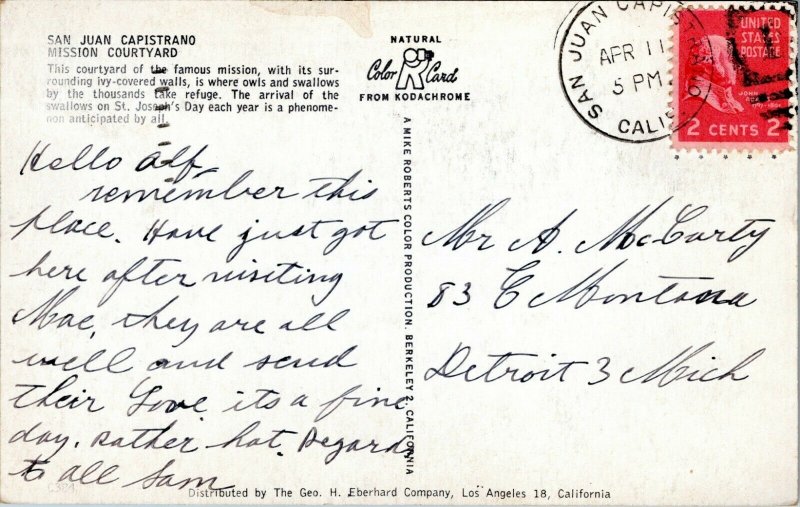 SAN JUAN CAPISTRANO
MISSION COURTYARD
This courtyard of the famous mission, with its sur-
rounding ivy-covered walls, is where owls and swallows
by the thousands take refuge. The arrival of the
swallows on St. Joseph's Day each year is a phenome-
non anticipated by all.
Hello Alf
remember this
place. Have just got
here after visiting
Mae, they are all
well and send
their Love. its a fine
day. Rather hot. Regards
to all Sam
NATURAL
Color Card
FROM KODACHROME
A MIKE ROBERTS COLOR PRODUCTION. BERKELEY 2, CALIFORNIA
SAN JUAN CAPISTRANO
APR 11
5 PM
CALIF
UNITED
STATES
POSTAGE
JOHN
2 CENTS 2
Mr A. McCarty
83 E Montana
Detroit 3 Mich
Distributed by The Geo. H. Eberhard Company, Los Angeles 18, California